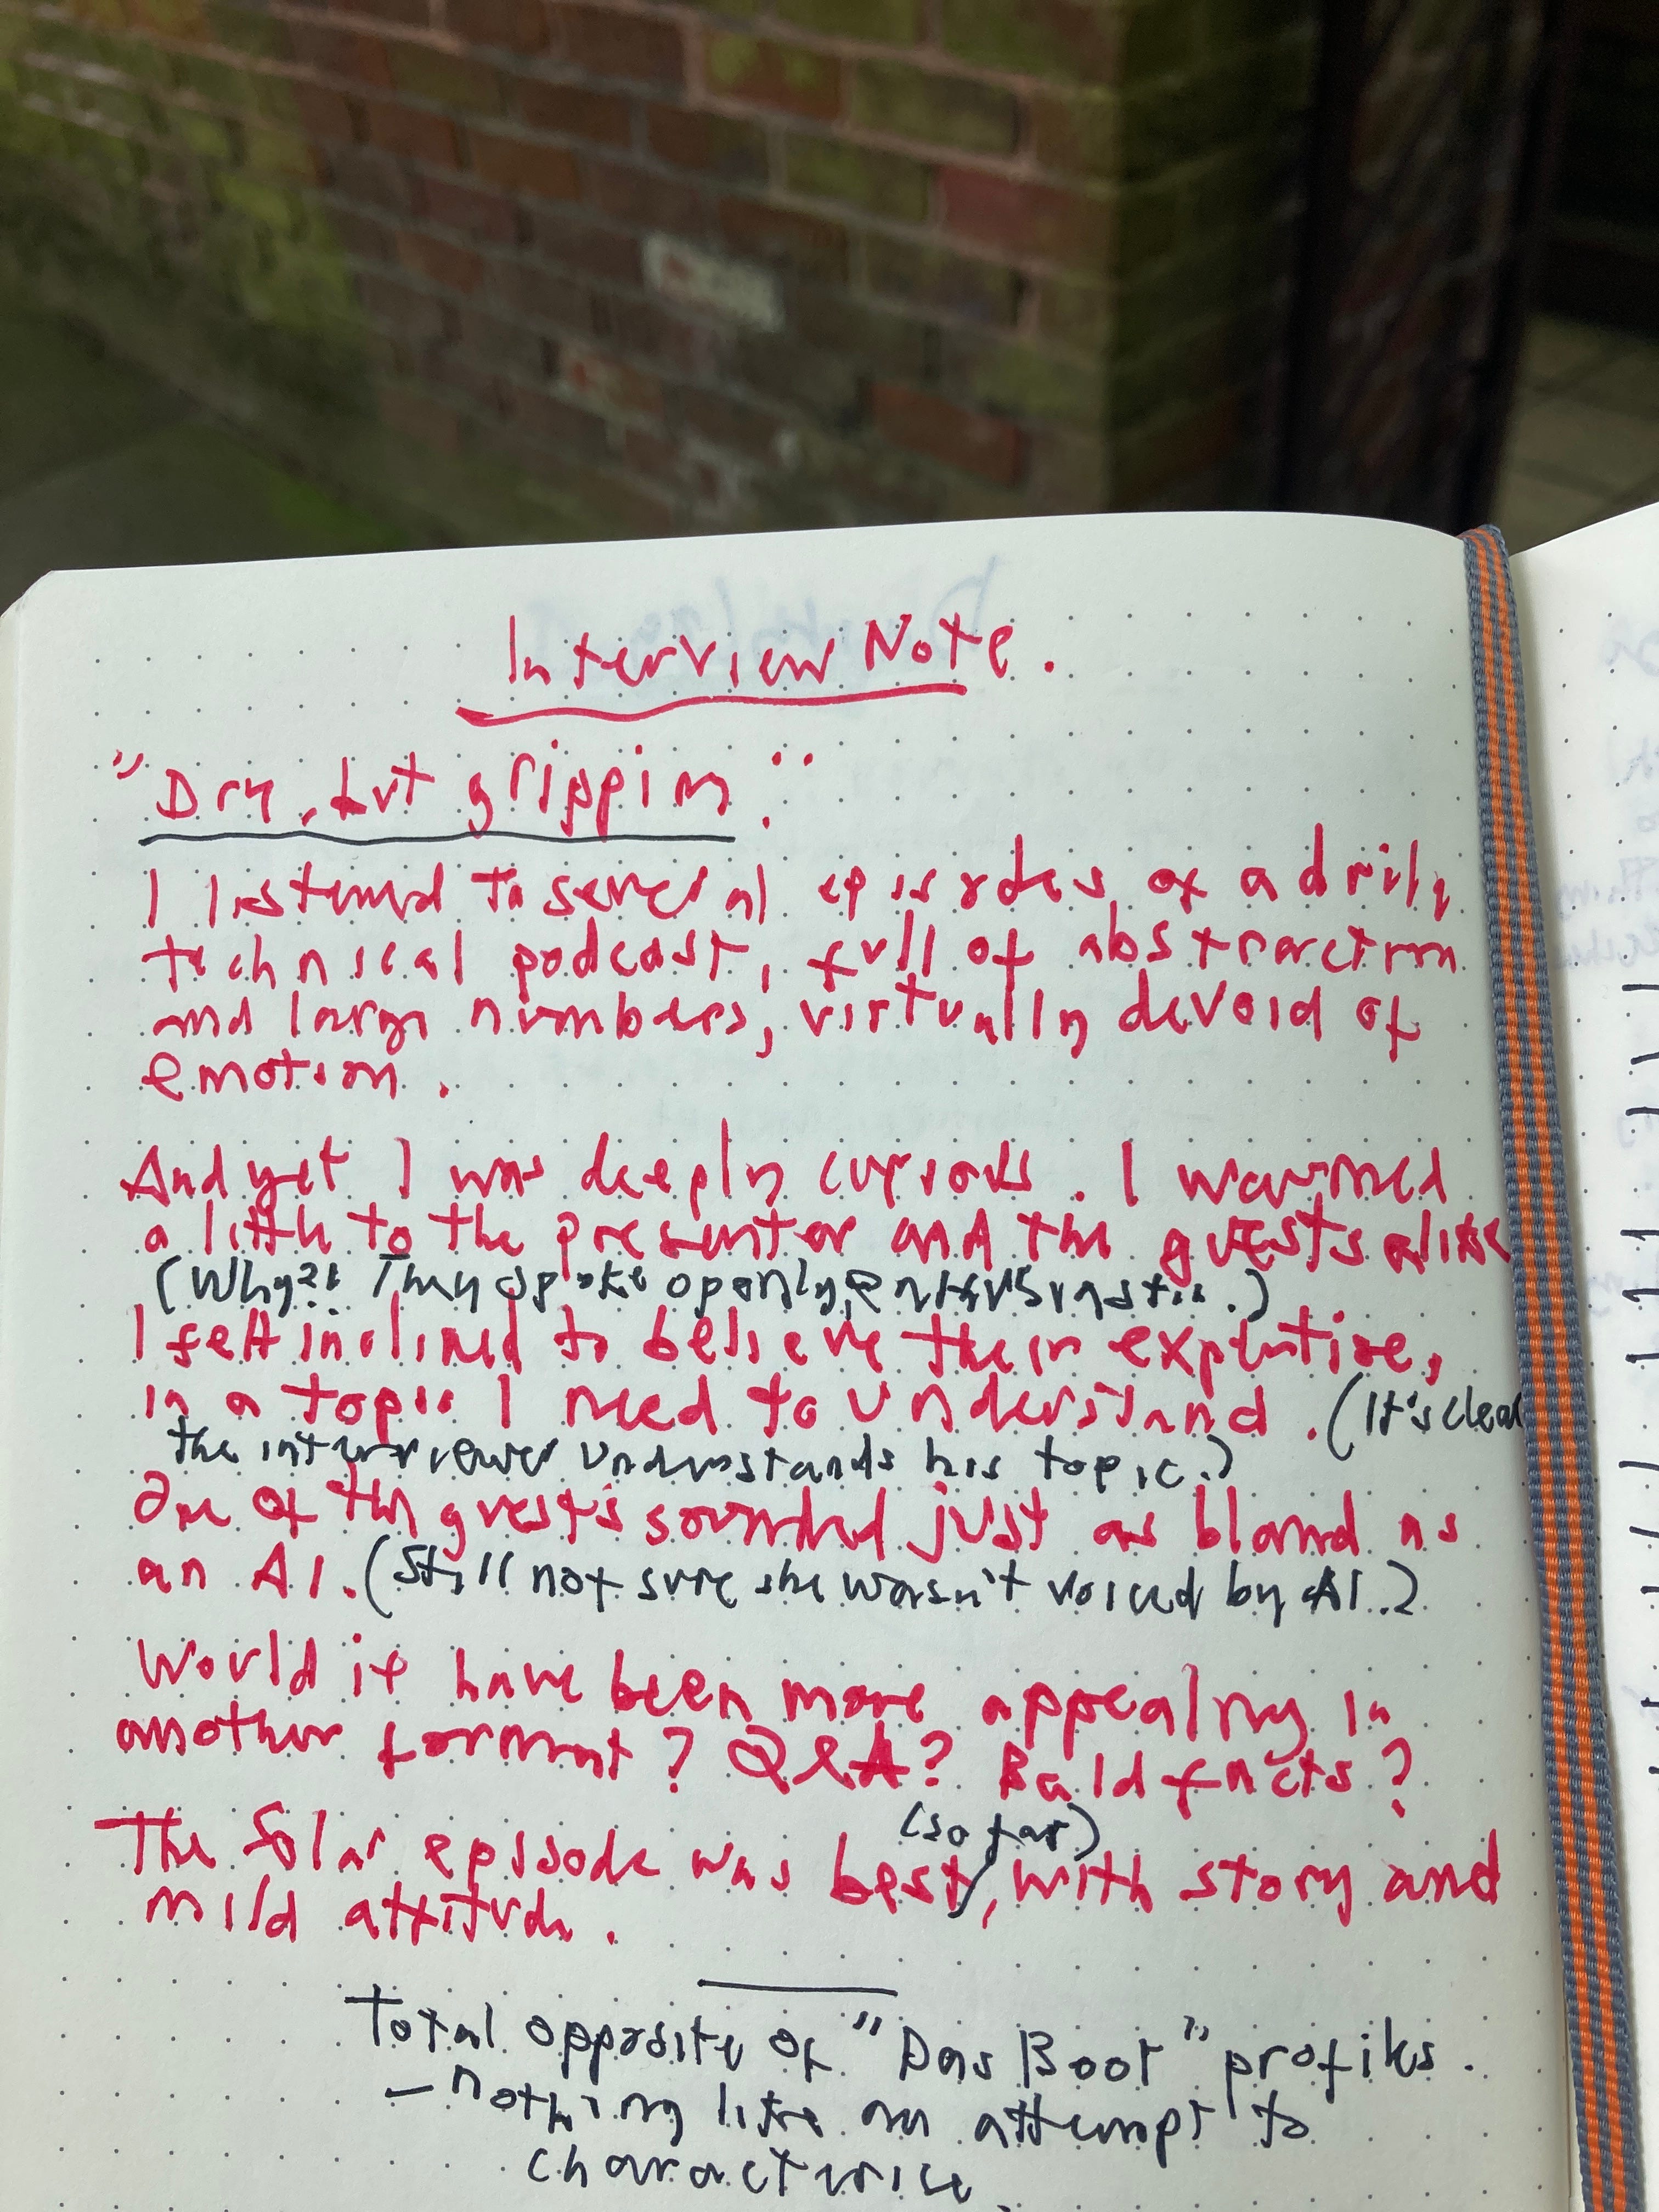 Interview Note.
"Dry, but gripping."
I listened to several episodes of a drily
technical podcast, full of abstraction
and large numbers, virtually devoid of
emotion.
And yet I was deeply curious. I warmed
a little to the presenter and the guests alike
(Why?! They spoke openly, enthusiastic.)
I felt inclined to believe their expertise,
in a topic I need to understand. (It's clear
the interviewer understands his topic.)
One of the guests sounded just as bland as
an AI. (Still not sure she wasn't voiced by AI..)
Would it have been more appealing in
another format? Q&A? Bald facts?
(so far)
The Solar episode was best, with story and
mild attitude.
Total opposite of "Das Boot" profiles.
– nothing like an attempt to
characterise.